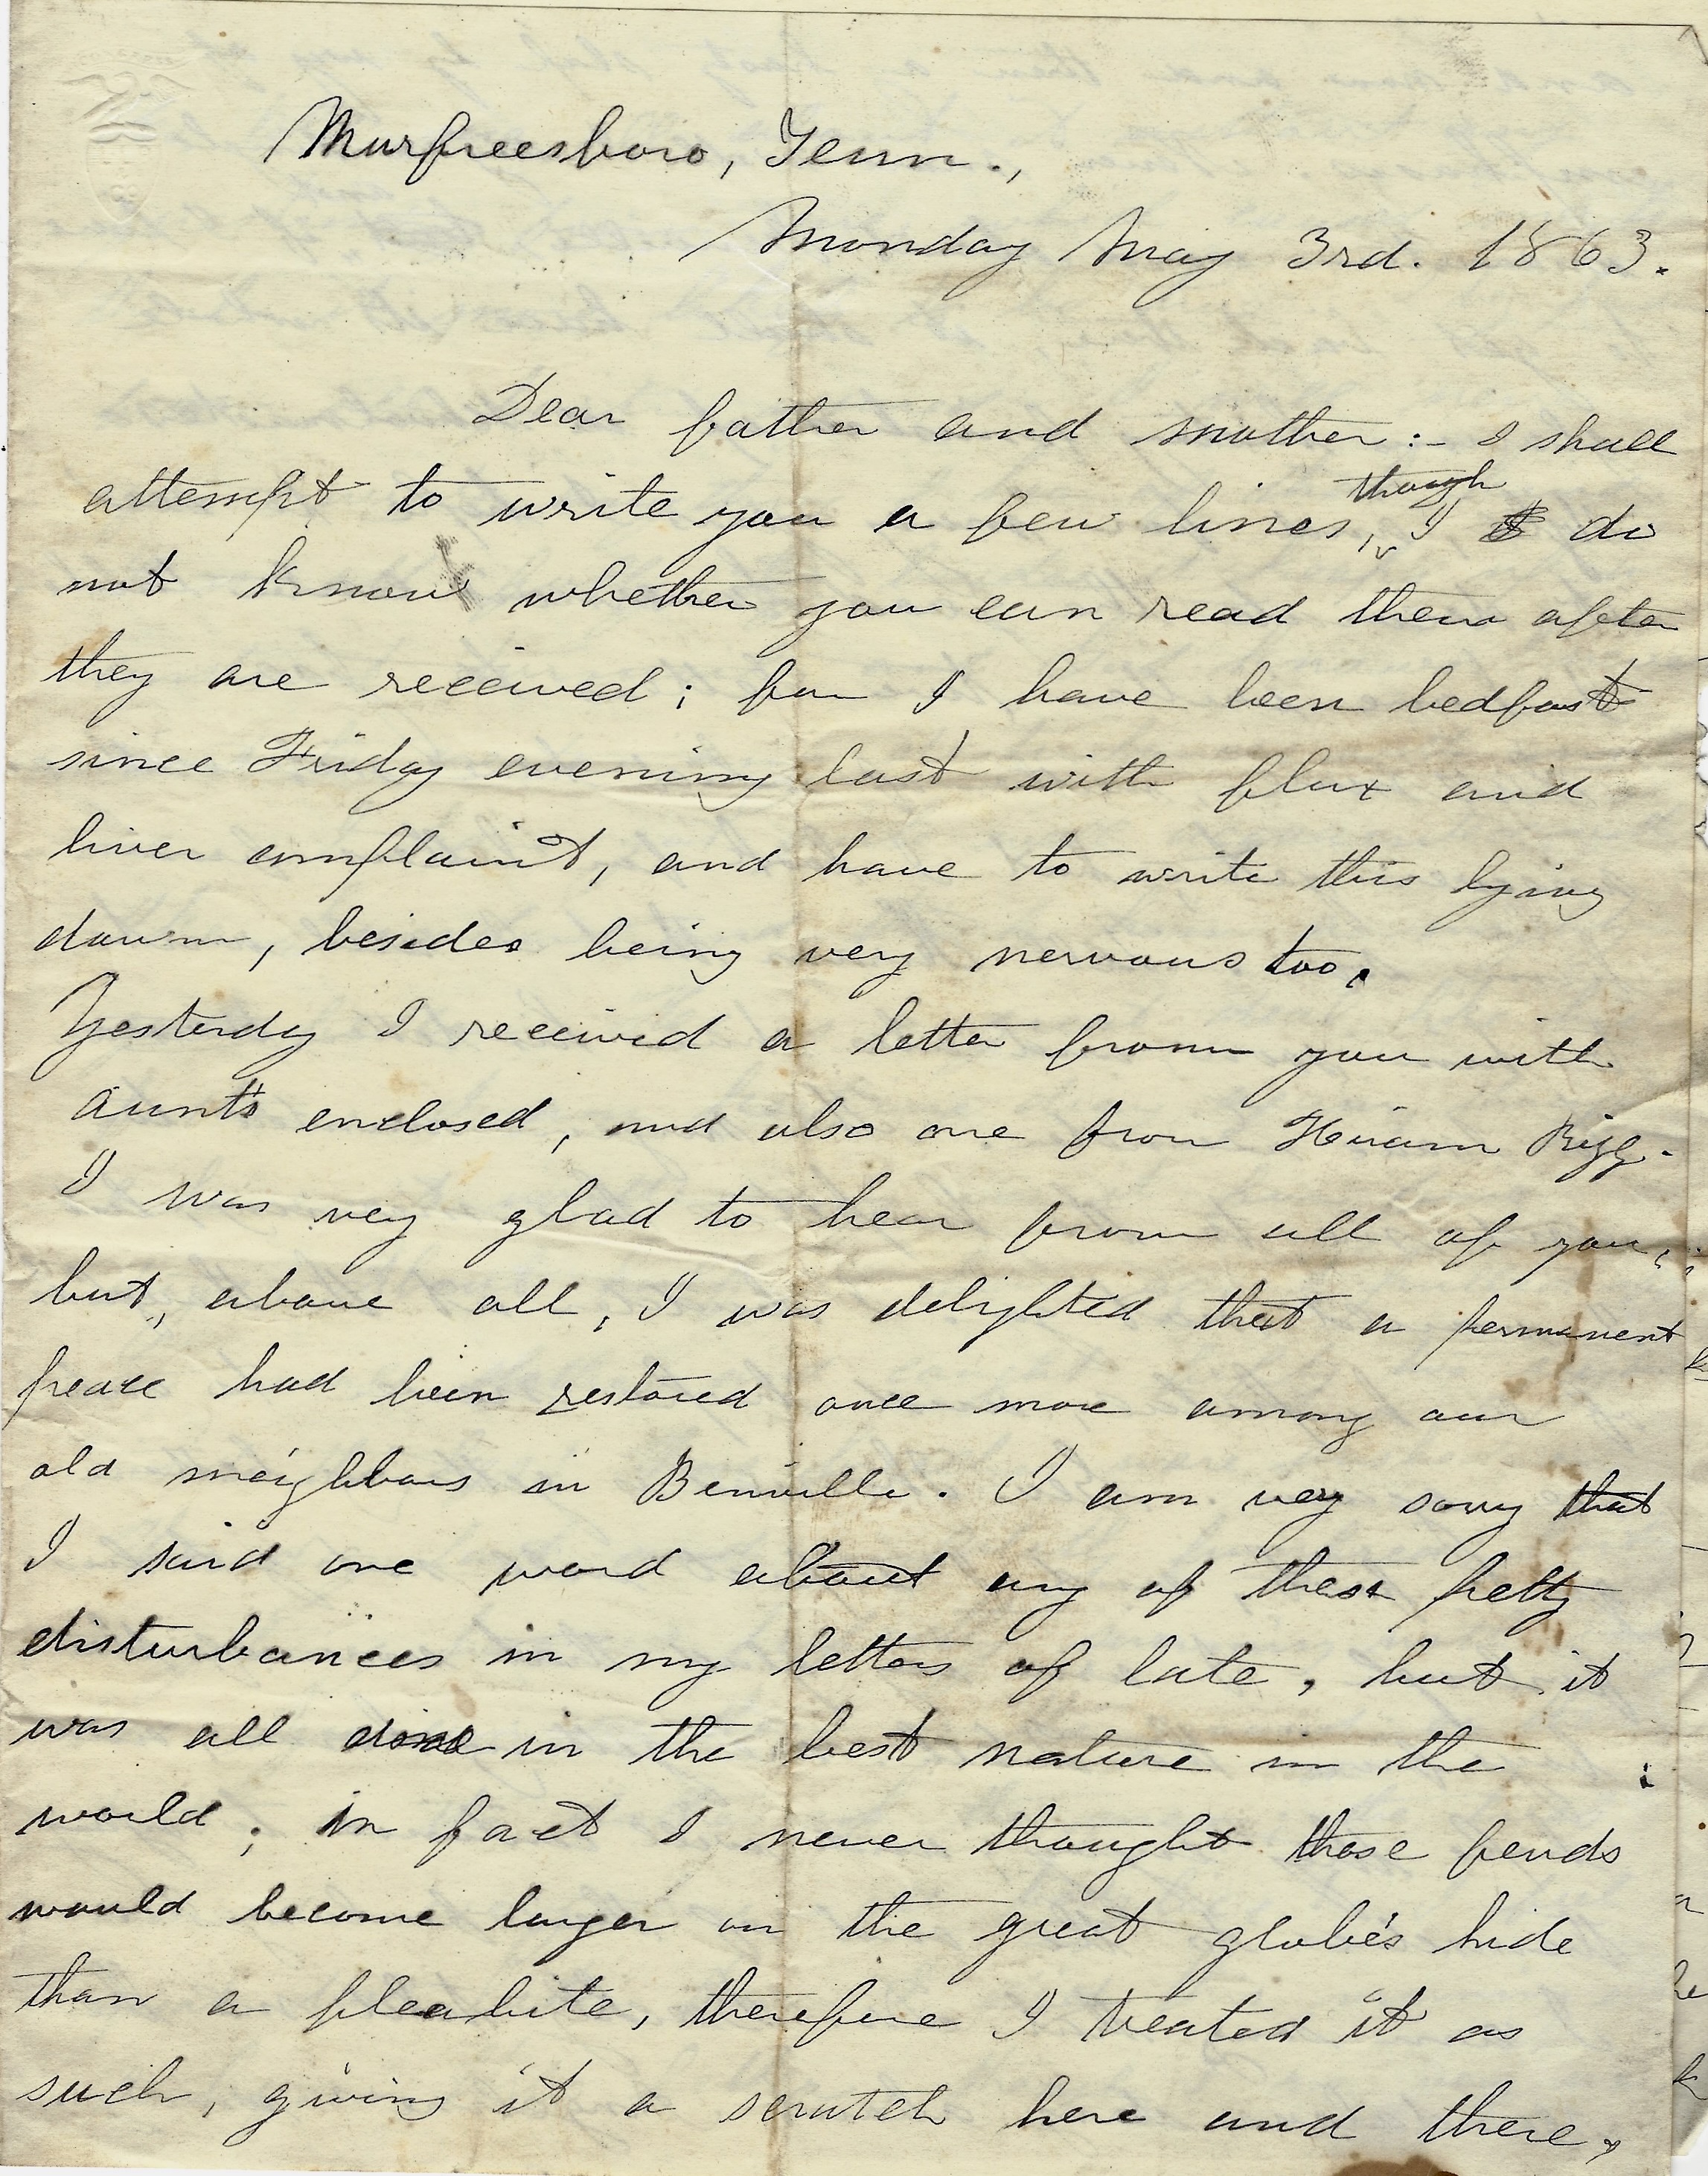 Murfreesboro, Tenn.,
Monday May 3rd. 1863.
Dear father and mother:- I shall
attempt to write you a few lines, though I do
not know whether you can read them after
they are received; for I have been bedfast
since Friday evening last with flux and
liver complaint, and have to write this lying
down, besides being very nervous too.
Yesterday I received a letter from you with
aunt's enclosed, and also one from Hiram Rigg.
I was very glad to hear from all of you;
but, above all, I was delighted that a permanent
peace had been restored once more among our
old neighbours in Benville. I am very sorry that
I said one word about any of these petty
disturbances in my letters of late, but it
was all done in the best nature in the
world; in fact I never thought those feuds
would become larger on the great globe's hide
than a fleabite, therefore I treated it as
such, giving it a scratch here and there,